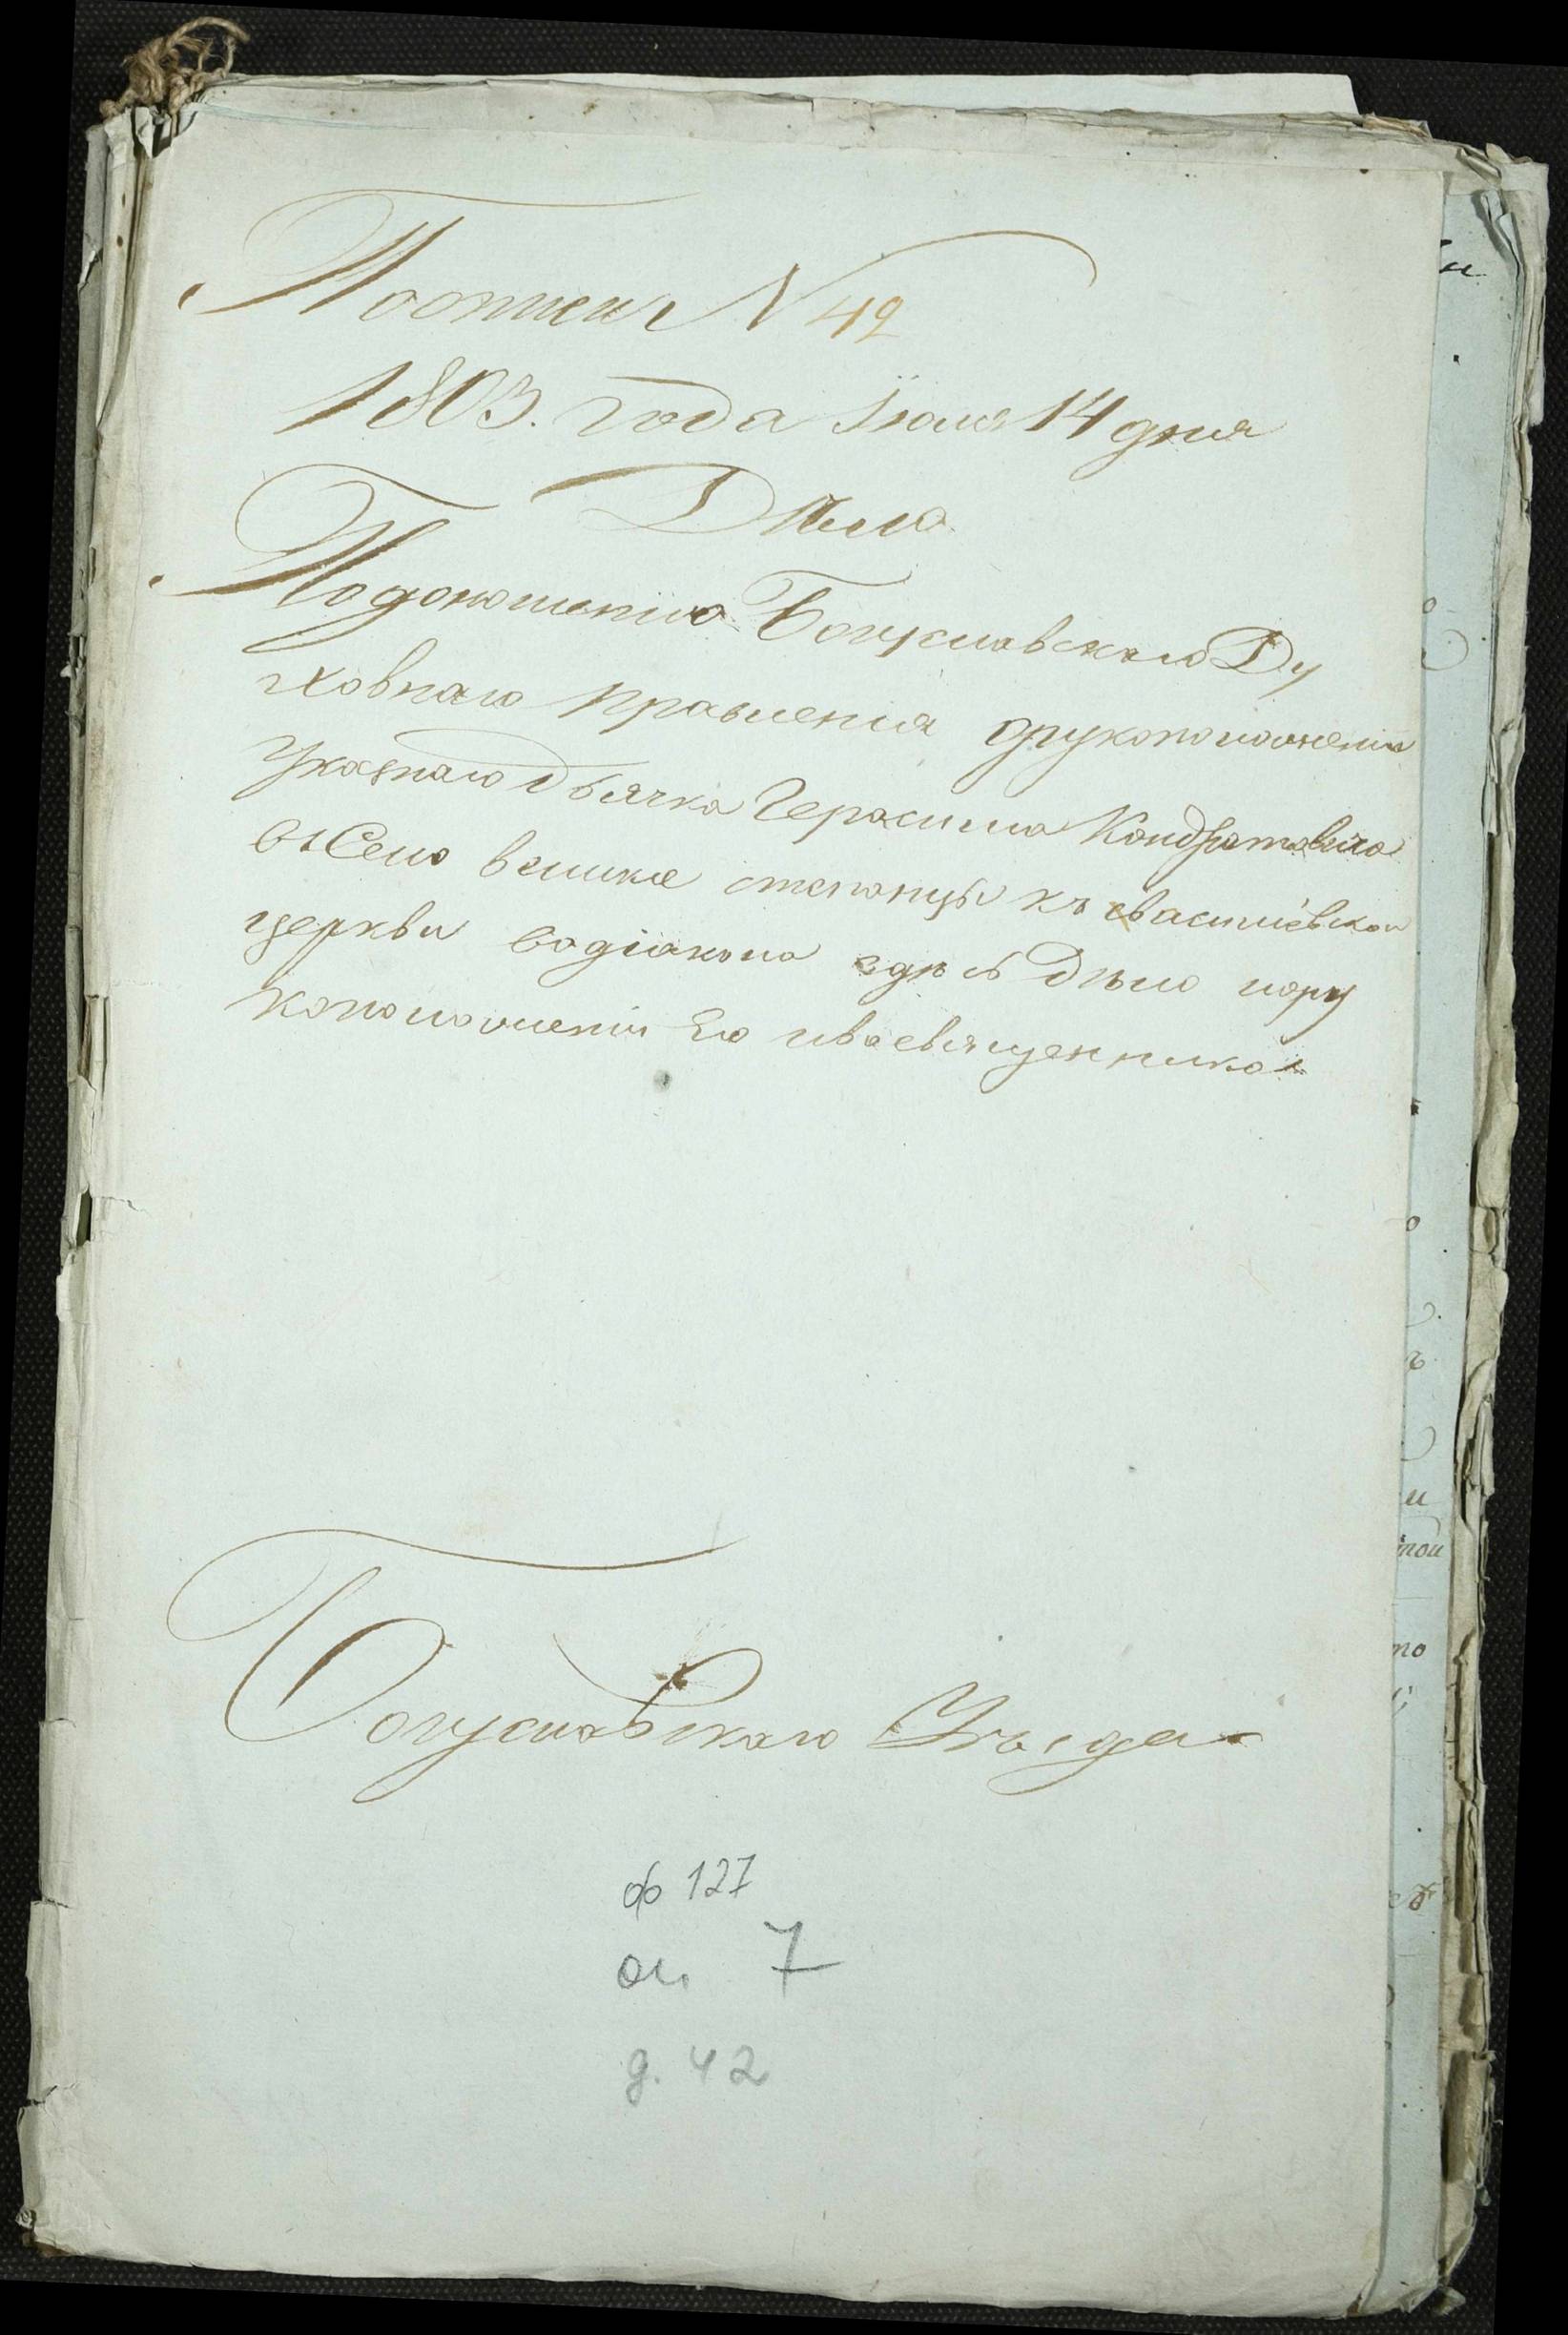 Поописи N 42
1803. года Іюля 14 дня
Дѣло
Подоношенію Богуславскаго Ду
ховнаго правленія орукоположеніи
указнаго дьячка Герасима Кондратовича
въ Село великіе степанцы къ василіевской
церкви водіакона здѣсь Дѣло пору
коположеніи Его ивосвященника
Богуславскаго Уѣзда
ф 127
оп. 7
д. 42